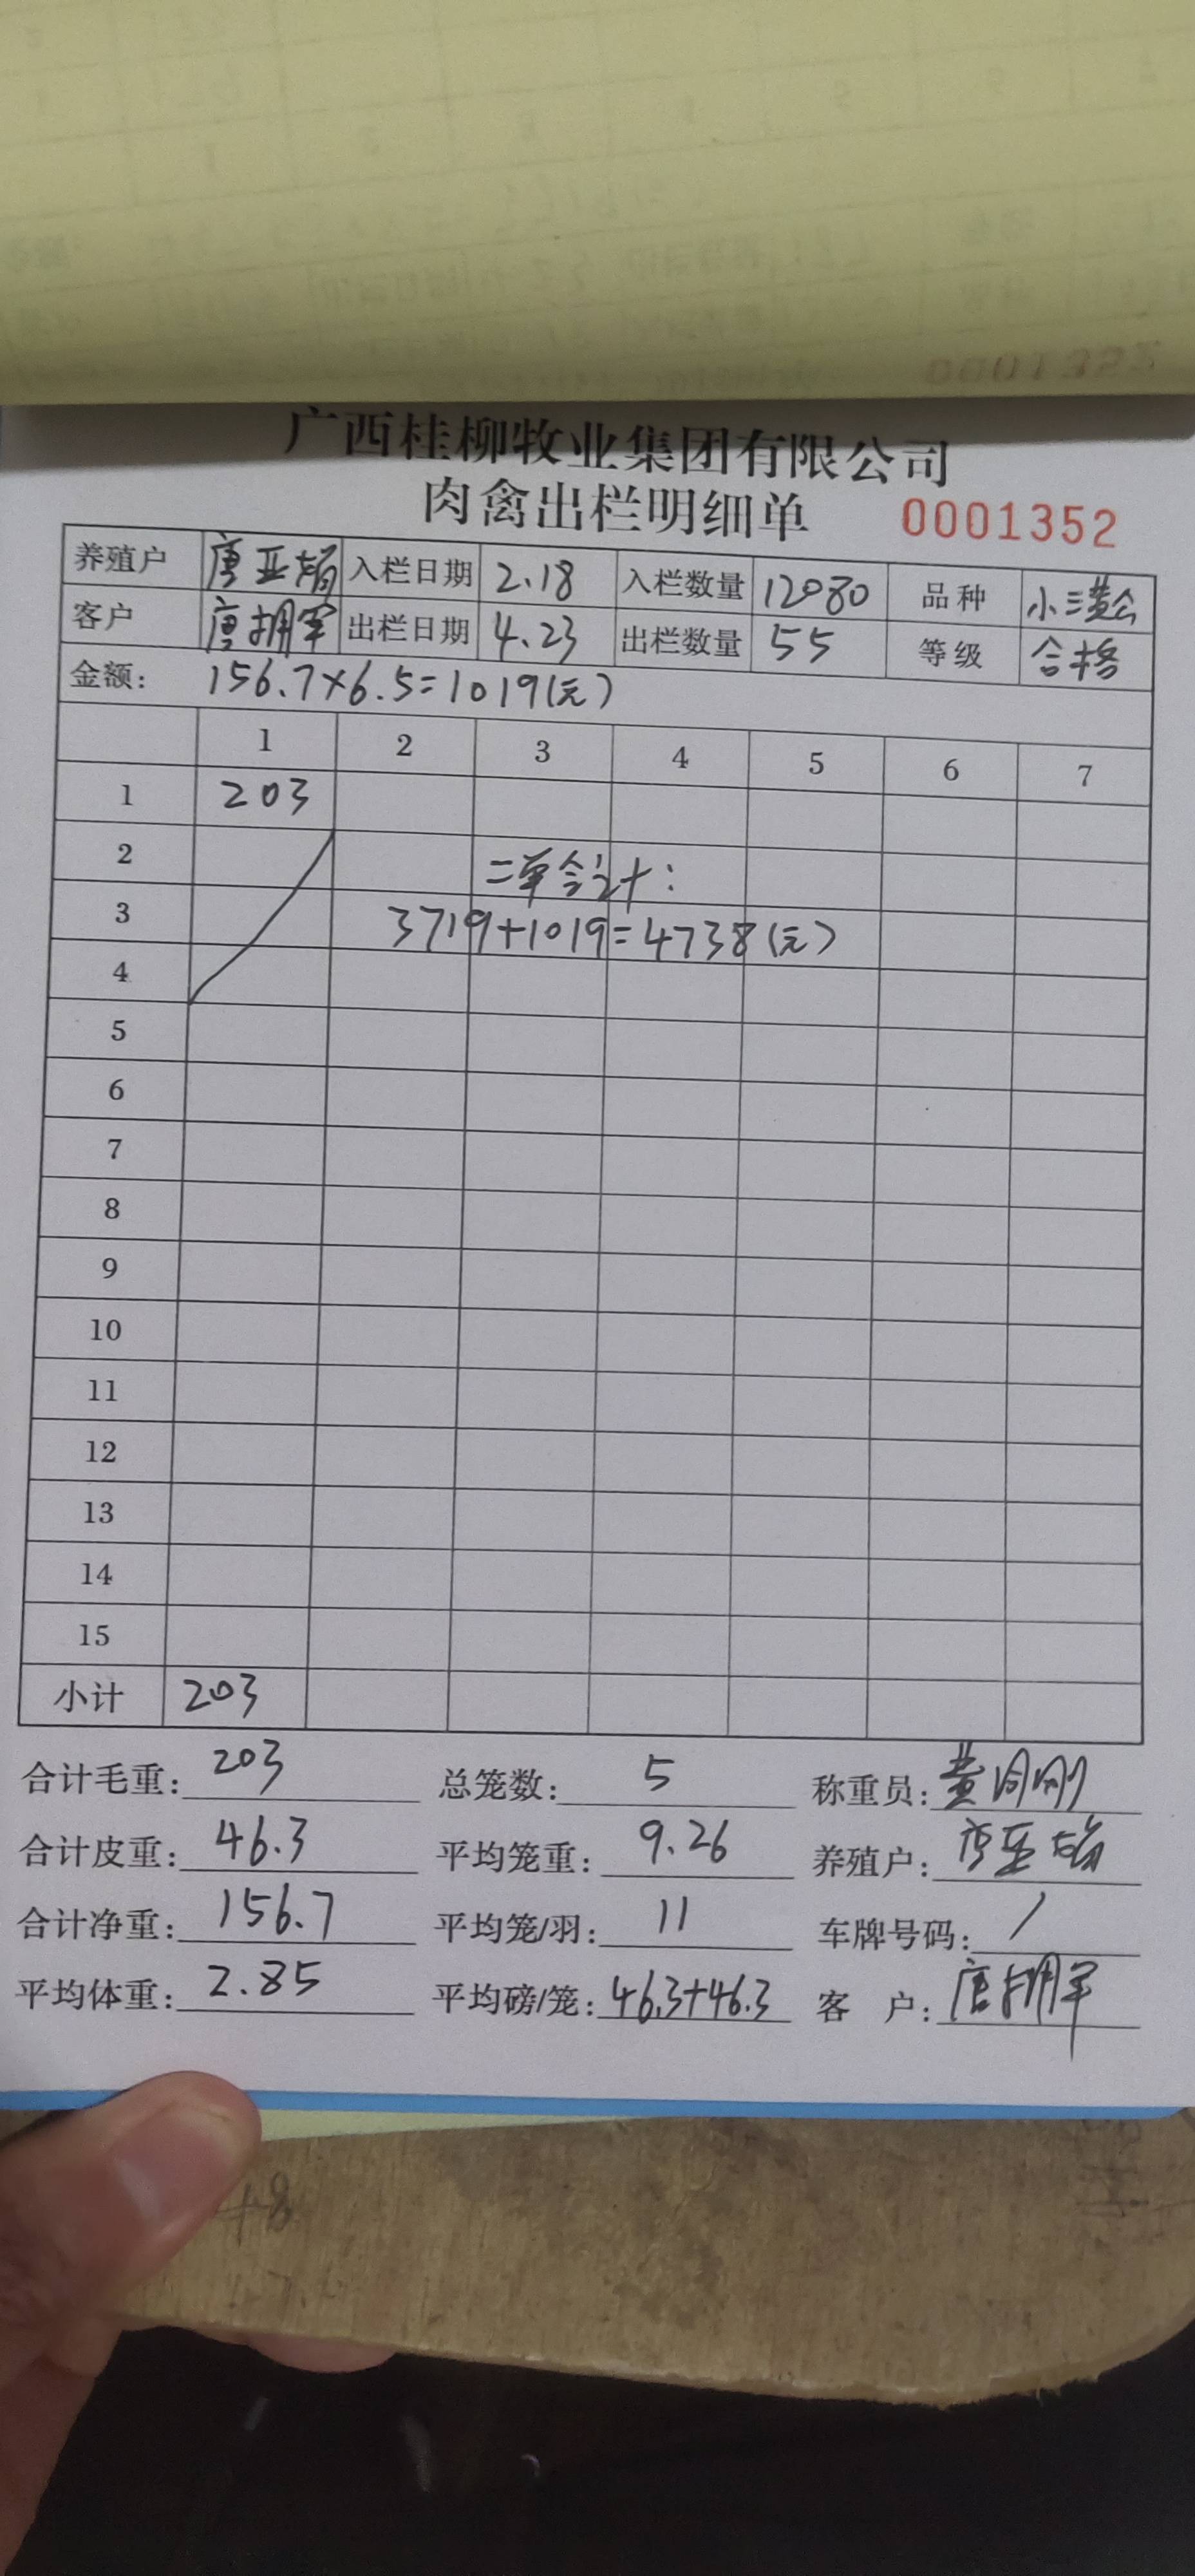 广西桂柳牧业集团有限公司
肉禽出栏明细单 0001352
养殖户 唐亚娟 入栏日期 2.18 入栏数量 12080 品种 小三黄公
客户 唐拥军 出栏日期 4.23 出栏数量 55 等级 合格
金额: 156.7×6.5=1019(元)
1 2 3 4 5 6 7
1 203
2 二单合计:
3 3719+1019=4738(元)
4
5
6
7
8
9
10
11
12
13
14
15
小计 203
合计毛重: 203 总笼数: 5 称重员: 黄
合计皮重: 46.3 平均笼重: 9.26 养殖户: 唐亚娟
合计净重: 156.7 平均笼/羽: 11 车牌号码: /
平均体重: 2.85 平均磅/笼: 46.3+46.3 客 户: 唐拥军